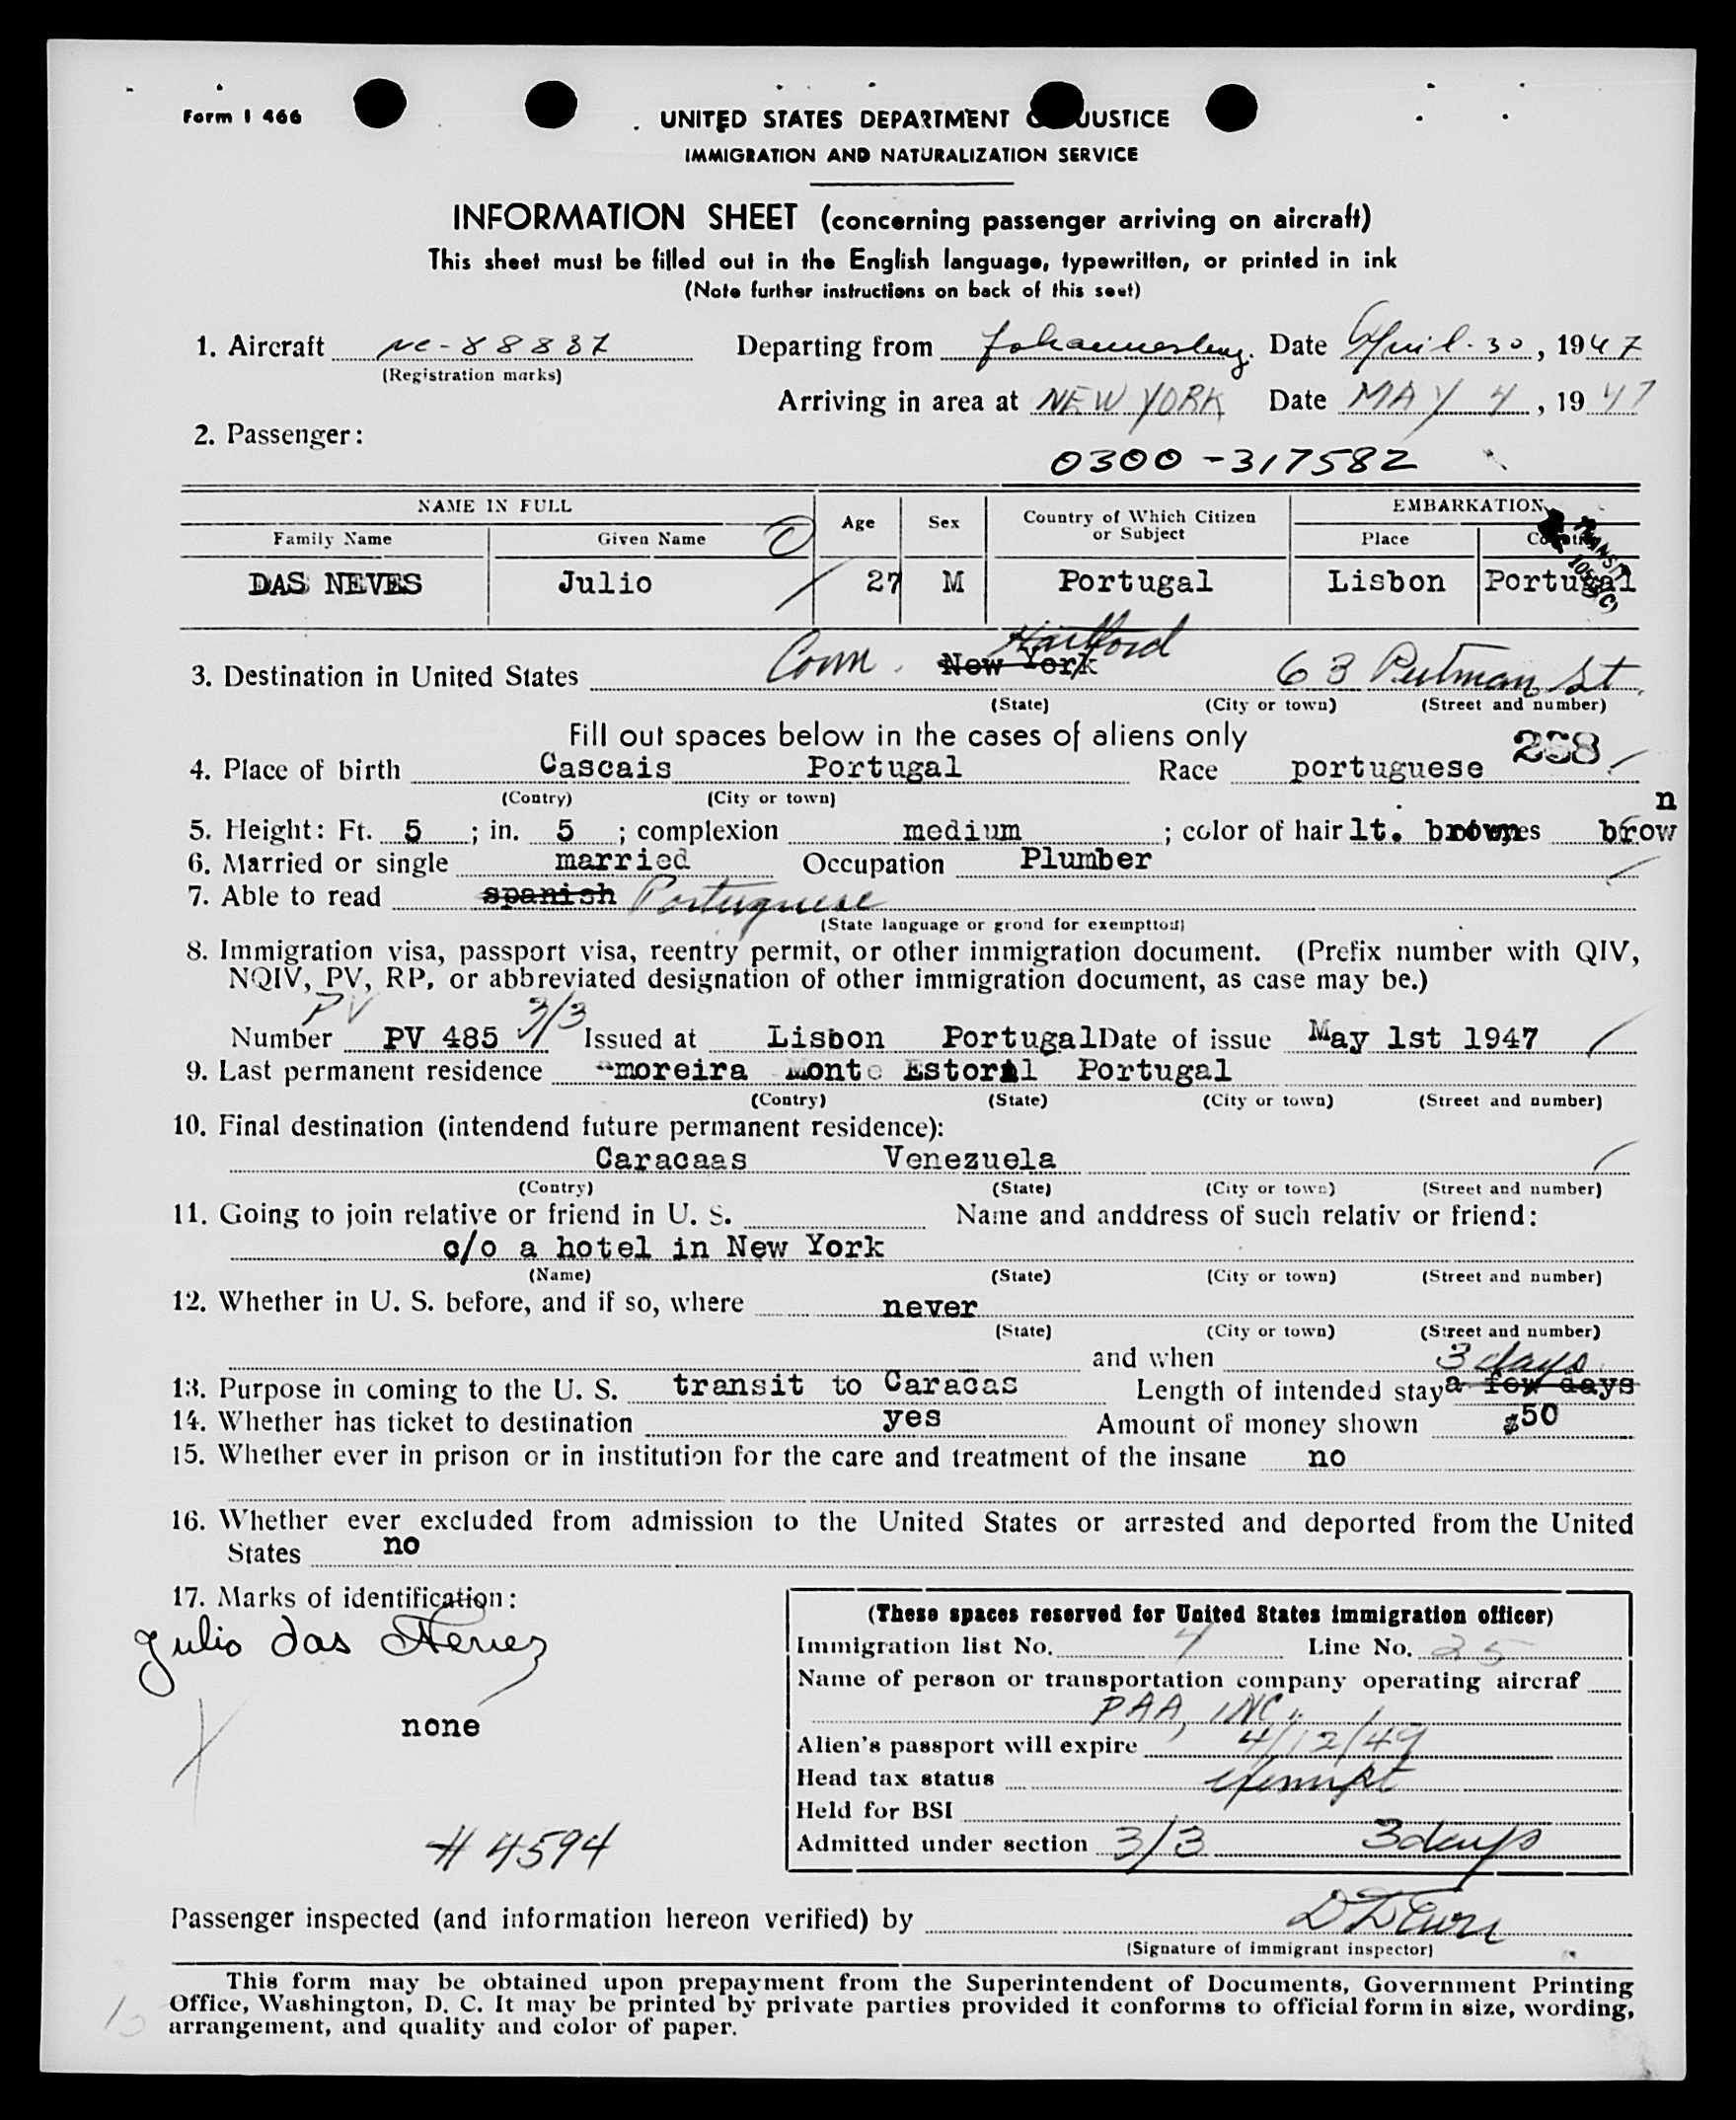 Form I 466
UNITED STATES DEPARTMENT JUSTICE
IMMIGRATION AND NATURALIZATION SERVICE
INFORMATION SHEET (concerning passenger arriving on aircraft)
This sheet must be filled out in the English language, typewritten, or printed in ink
(Note further instructions on back of this seet)
1. Aircraft NC-88837 Departing from Johannesburg. Date April 30, 1947
(Registration marks)
Arriving in area at NEW YORK Date MAY 4, 1947
2. Passenger:
0300-317582
NAME IN FULL Age Sex Country of Which Citizen or Subject EMBARKATION
Family Name Given Name Place
DAS NEVES Julio 27 M Portugal Lisbon Portugal
TRANSIT
Hartford
3. Destination in United States Conn. New York 63 Putman St.
(State) (City or town) (Street and number)
Fill out spaces below in the cases of aliens only
258
4. Place of birth Cascais Portugal Race portuguese
(Contry) (City or town)
5. Height: Ft. 5; in. 5; complexion medium; color of hair lt. brown eyes brown
6. Married or single married Occupation Plumber
7. Able to read spanish Portuguese
(State language or grond for exemptton)
8. Immigration visa, passport visa, reentry permit, or other immigration document. (Prefix number with QIV,
NQIV, PV, RP, or abbreviated designation of other immigration document, as case may be.)
PV 3/3
Number PV 485 Issued at Lisbon Portugal Date of issue May 1st 1947
9. Last permanent residence Amoreira Monte Estoril Portugal
(Contry) (State) (City or town) (Street and number)
10. Final destination (intendend future permanent residence):
Caracaas Venezuela
(Contry) (State) (City or town) (Street and number)
11. Going to join relative or friend in U. S. Name and anddress of such relativ or friend:
c/o a hotel in New York
(Name) (State) (City or town) (Street and number)
12. Whether in U. S. before, and if so, where never
(State) (City or town) (Street and number)
and when
3 days
13. Purpose in coming to the U. S. transit to Caracas Length of intended stay a few days
14. Whether has ticket to destination yes Amount of money shown $50
15. Whether ever in prison or in institution for the care and treatment of the insane no
16. Whether ever excluded from admission to the United States or arrested and deported from the United
States no
17. Marks of identification:
Julio das Neves
none
# 4594
(These spaces reserved for United States immigration officer)
Immigration list No. 4 Line No. 25
Name of person or transportation company operating aircraf
PAA, INC.
Alien's passport will expire 4/12/49
Head tax status exempt
Held for BSI
Admitted under section 3/3 3 days
Passenger inspected (and information hereon verified) by
(Signature of immigrant inspector)
This form may be obtained upon prepayment from the Superintendent of Documents, Government Printing
Office, Washington, D. C. It may be printed by private parties provided it conforms to official form in size, wording,
arrangement, and quality and color of paper.